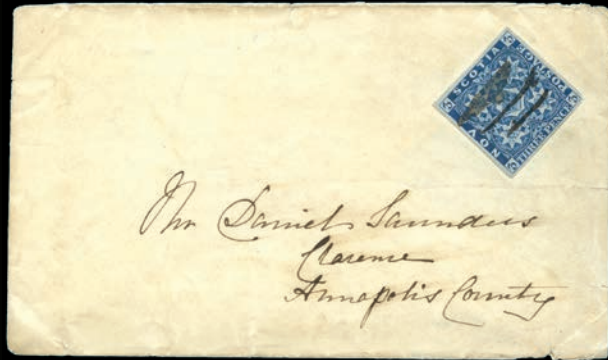 NOVA SCOTIA
POSTAGE
THREE PENCE
Mr Daniel Saunders
Clarence
Annapolis County